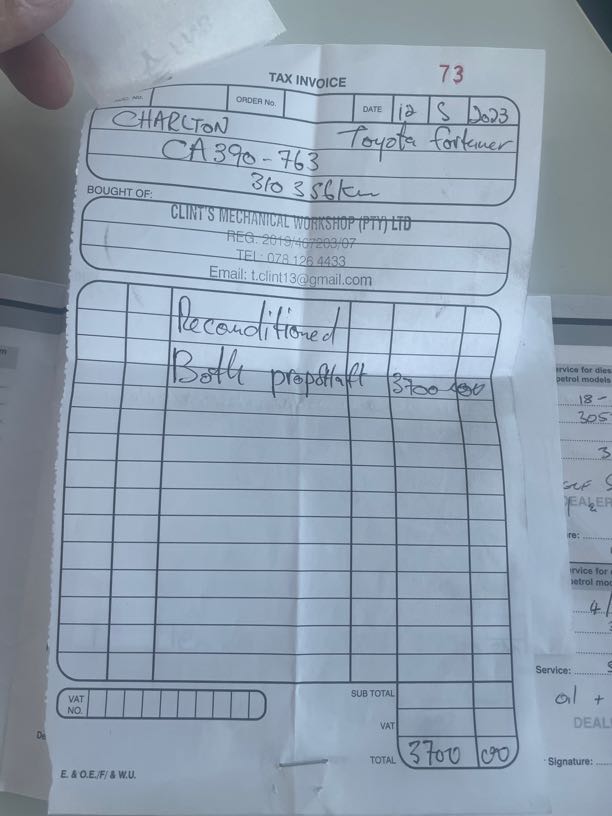 TAX INVOICE
73
ORDER No.
DATE 12 5 2023
CHARLTON
Toyota fortuner
CA 390-763
310 356km
BOUGHT OF:
CLINT'S MECHANICAL WORKSHOP (PTY) LTD
REG: 2019/467203/07
TEL: 078 126 4433
Email: t.clint13@gmail.com
Reconditioned
Both propshaft 3700 00
SUB TOTAL
VAT NO.
VAT
TOTAL 3700 00
E. & O.E./F/ & W.U.
ervice for dies
petrol models
18-
305
3
DEALER
re:
rvice for
petrol mo
4/
Service:
oil +
DEAL
Signature: